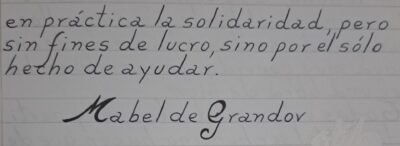 en práctica la solidaridad, pero
sin fines de lucro, sino por el sólo
hecho de ayudar.
Mabel de Grandov